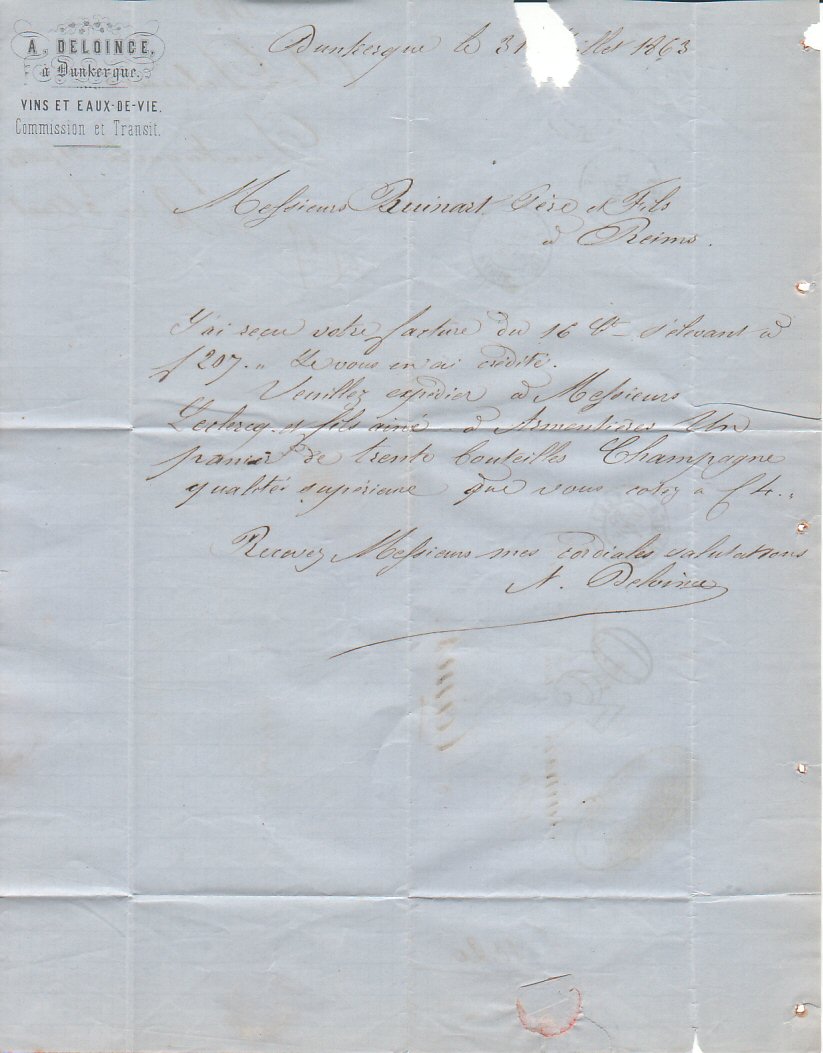 A. DELOINCE,
à Dunkerque.
VINS ET EAUX-DE-VIE.
Commission et Transit.
Dunkerque le 31 illet 1863
Messieurs Ruinart Père et Fils
à Reims.
J'ai recu votre facture du 16 Ct s'élevant à
f 207. " Je vous en ai crédité.
Veuillez expédier à Messieurs
Leclercq et fils ainé à Armentières Un
panier de trente bouteilles Champagne
qualité supérieure que vous cotez à f 4. "
Recevez Messieurs mes cordiales salutations
A. Deloince